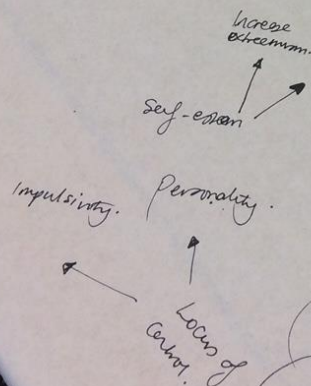 Increase
extreemism.
Self-esteem
Impulsivity.
Personality.
Locus of
Control.